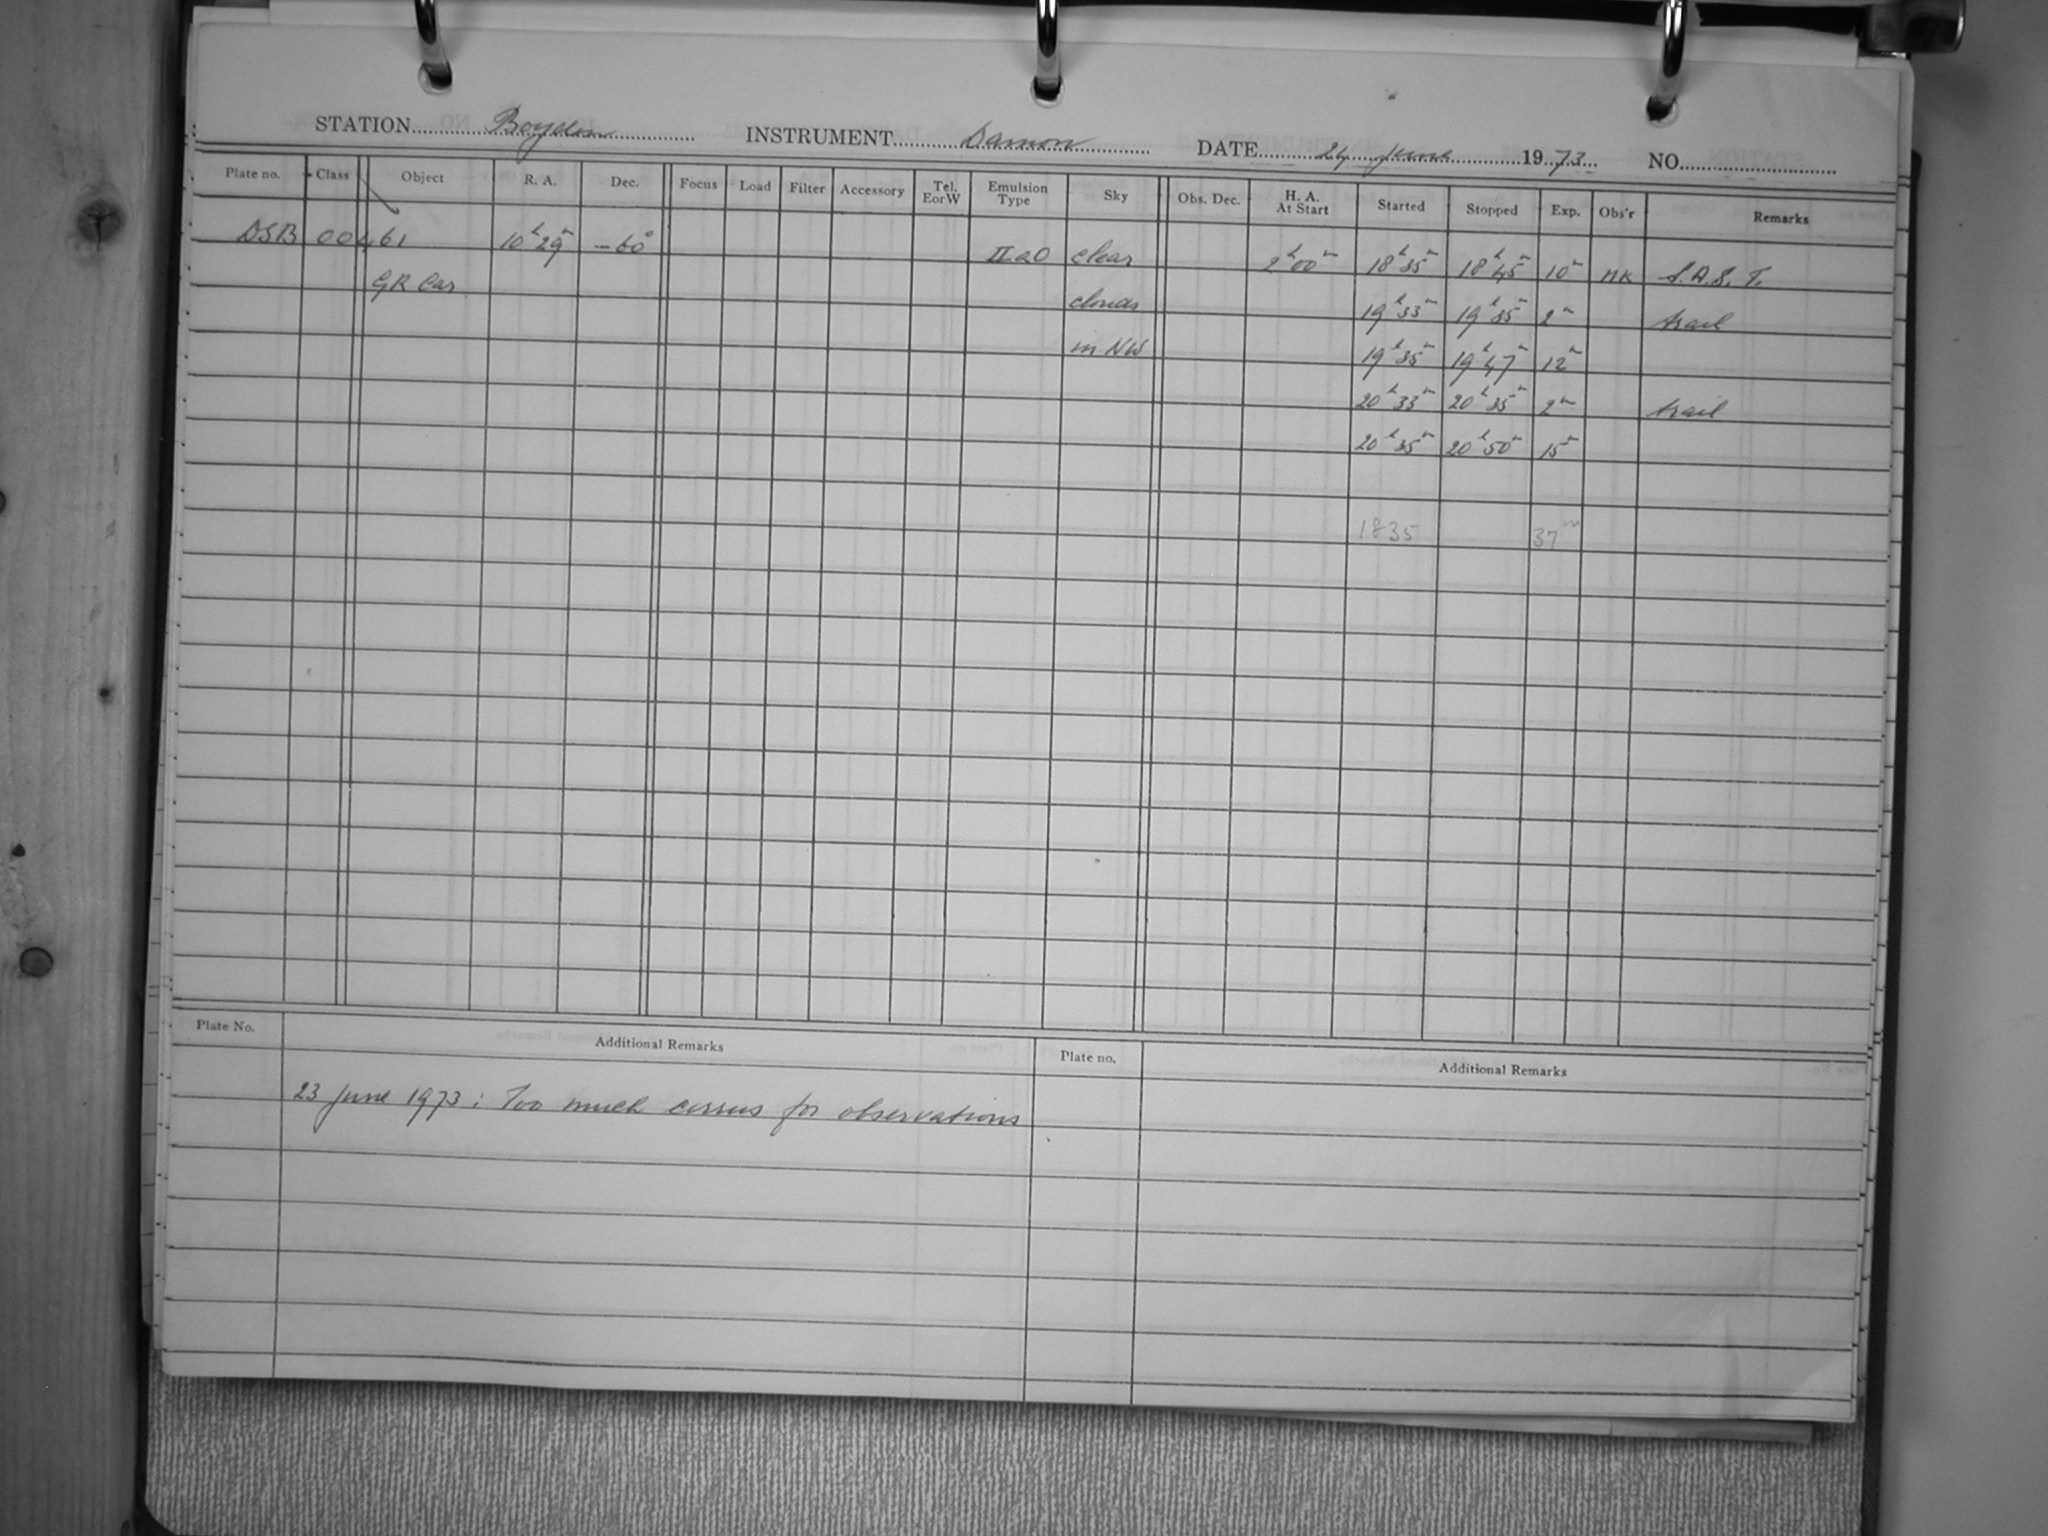 STATION Boyden INSTRUMENT Damon DATE 24 June 1973 NO.
Plate no. Class Object R. A. Dec. Focus Load Filter Accessory Tel. EorW Emulsion Type Sky Obs. Dec. H. A. At Start Started Stopped Exp. Obs'r Remarks
DSB 00461 10h 29m -60° IIaO clear 2h00m 18h35m 18h45m 10m nk S.A.S.T.
GR Car clouds 19h33m 19h35m 2m trail
in NW 19h35m 19h47m 12m
20h33m 20h35m 2m trail
20h35m 20h50m 15m
1835 37m
Plate No. Additional Remarks Plate no. Additional Remarks
23 June 1973: Too much cirrus for observations